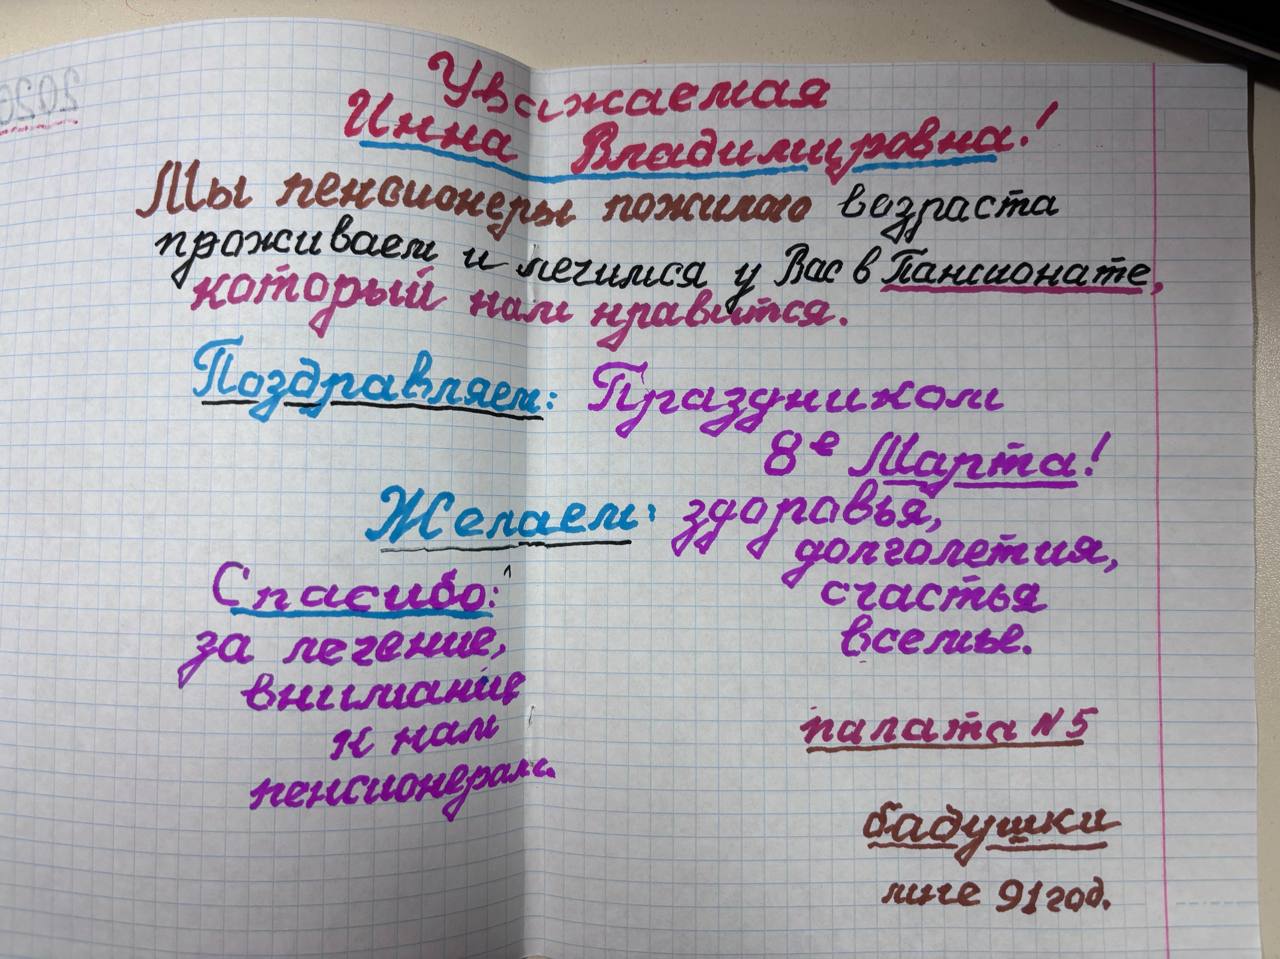 Уважаемая
Инна Владимировна!
Мы пенсионеры пожилого возраста
проживаем и лечимся у Вас в Пансионате,
который нам нравится.
Поздравляем: Праздником
8е Марта!
Желаем: здоровья,
долголетия,
счастья
всемье.
Спасибо:
за лечение,
внимание
к нам
пенсионерам.
палата N5
бадушки
мне 91год.